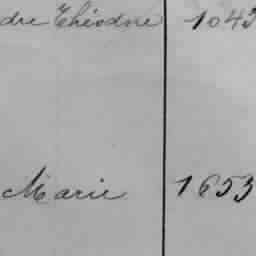 dre Théodore 1043
Marie 1653